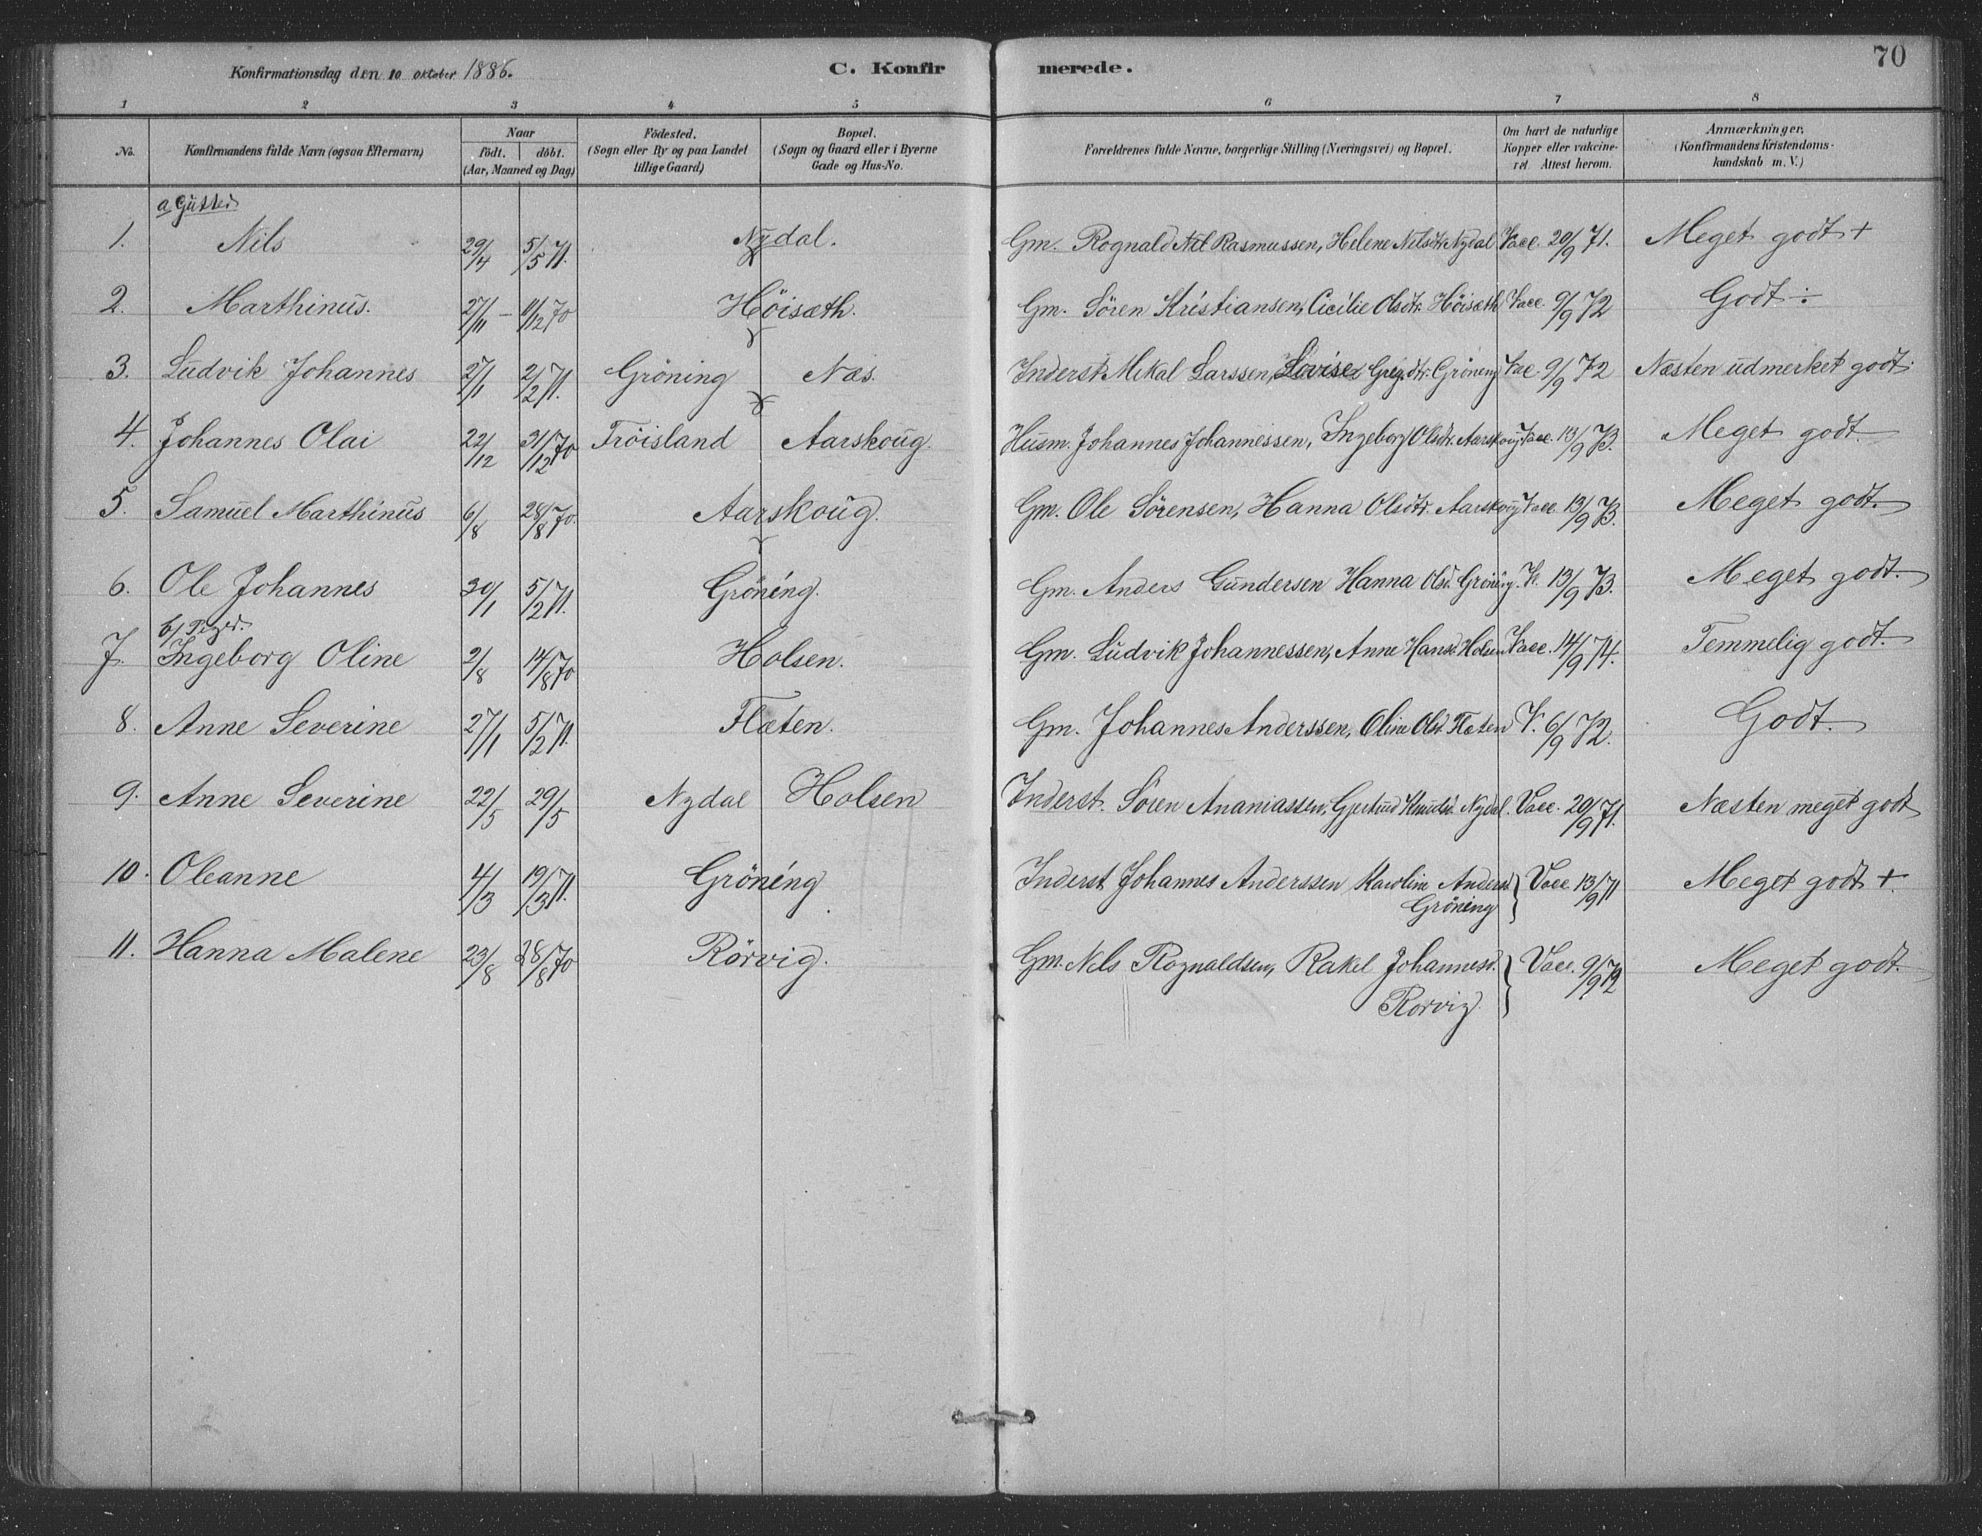 Konfirmationsdag den 10 oktober 1886. C. Konfir merede. 70
1 2 3 4 5 6 7 8
No. Konfirmandens fulde Navn (ogsaa Efternavn) Naar födt. döbt. (Aar, Maaned og Dag) Födested. (Sogn eller By og paa Landet tillige Gaard) Bopæl. (Sogn og Gaard eller i Byerne Gade og Hus-No. Forældrenes fulde Navne, borgerlige Stilling (Næringsvei) og Bopæl. Om havt de naturlige Kopper eller vakcineret. Attest herom. Anmærkninger. (Konfirmandens Kristendomskundskab m. V.)
a Gutter
1. Nils 29/4 5/5 71. Nydal. Gm. Rognald Nil Rasmussen, Helene Nilsdtr Nydal Vacc. 20/9 71. Meget godt +
2. Marthinus. 27/11 – 11/12 70 Höisæth. Gm. Sören Kristiansen, Cicilie Olsdtr. Höisæth Vacc. 9/9 72 Godt ÷
3. Ludvik Johannes 27/1 2/2 71. Gröning Næs. Inderst Mikal Larssen, Lovise Greg.dtr. Gröning Vac. 9/9 72 Næsten udmerket godt.
4. Johannes Olai 22/12 31/12 70 Tröisland Aarskoug. Husm. Johannes Johannessen, Ingeborg Olsdtr. Aarskoug Vacc. 13/9 73. Meget godt.
5. Samuel Marthinus 6/8 28/8 70. Aarskoug. Gm. Ole Sörensen, Hanna Olsdtr. Aarskoug Vacc. 13/9 73. Meget godt.
6. Ole Johannes 30/1 5/2 71. Gröning. Gm. Anders Gundersen Hanna Olsd. Gröning. V. 13/9 73. Meget godt.
b/ Piger.
7. Ingeborg Oline 2/8 14/8 70 Holsen. Gm. Ludvik Johannessen, Anne Hansd. Holsen Vacc. 14/9 74. Temmelig godt.
8. Anne Severine 27/1 5/2 71. Flæten. Gm. Johannes Anderssen, Oline Olsd. Flæten V. 6/9 72. Godt.
9. Anne Severine 22/5 29/5 Nydal Holsen Inderst. Sören Ananiassen, Gjertrud Knutsd. Nydal. Vacc. 20/9 71. Næsten meget godt
10. Oleanne 4/3 19/3 71. Gröning Inderst Johannes Anderssen Karoline Andersd. Vacc 13/9 71 Meget godt +.
Gröning
11. Hanna Malene 23/8 28/8 70 Rörvig. Gm. Nels Rognaldsen, Rakel Johannesd. Vacc. 9/9 72 Meget godt.
Rorvig.